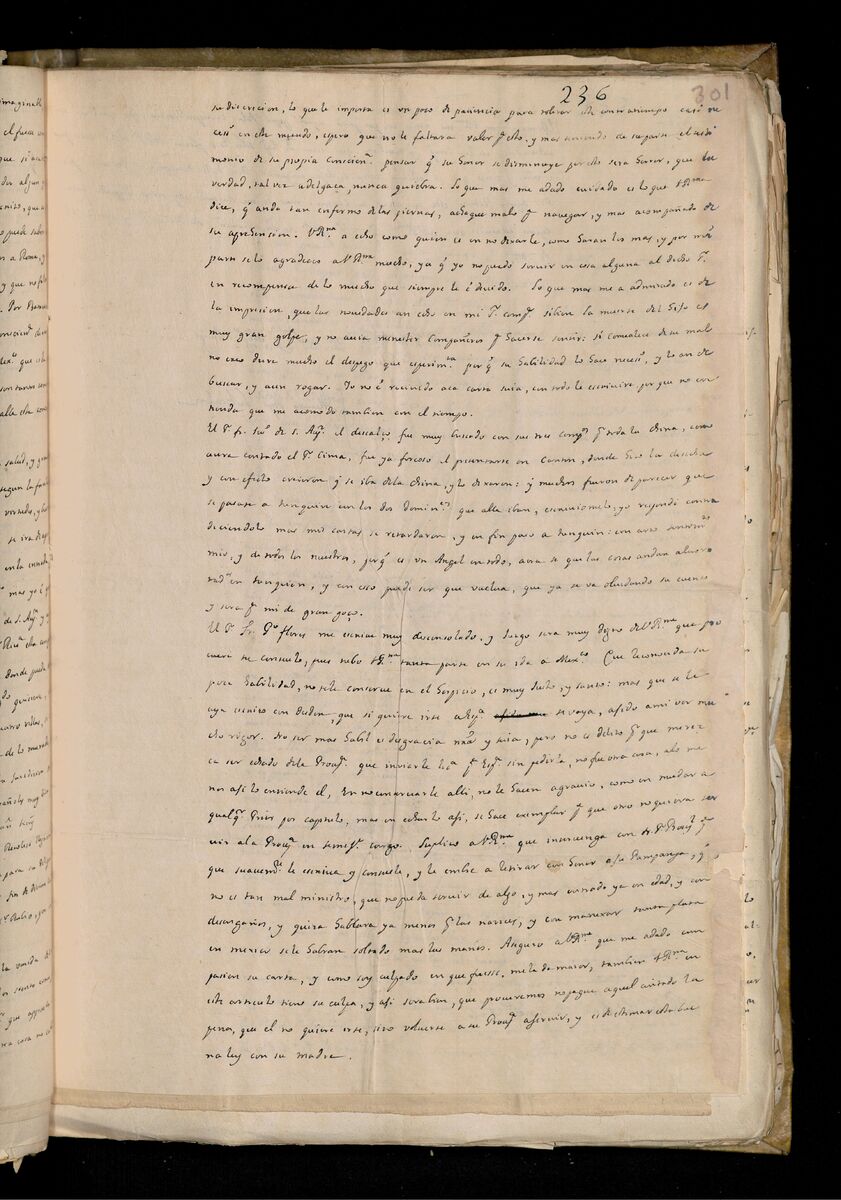 236
301
su discrecion, lo que le importa es un poco de paciencia para sobrar este contratiempo casi ne
cesº en este mundo, espero que no le faltara valor pª esto, y mas teniendo de su parte el testi
monio de su propia conscienª. pensar q̃ su honor se disminuye por esto sera error, que la
verdad, tal vez adelgaça, nunca quiebra. Lo que mas me a dado cuidado es lo que VRma
dice, q̃ anda tan enfermo de las piernas, achaque malo pª navegar, y mas acompañado de
su aprehension. VRma a echo como quien es en no dexarle, como haran los mas, y por mi
parte se lo agradezco a VRma mucho, ya q̃ yo no puedo servir en cosa alguna al dicho Pe.
en recompensa de lo mucho que siempre le é devido. Lo que mas me a admirado es de
la impresion, que las novedades an echo en mi Pe. compº. si bien la muerte del hijo es
muy gran golpe, y no avia menester compañeros pª hacerse sentir: si convalece de su mal
no creo dure mucho el despego que esperimta porq̃ su habilidad lo hace necessº, y lo an de
buscar, y aun rogar. Yo no é recivido aca carta suia, con todo le escrivire por que no en
tienda que me acomodo tambien con el tiempo.
El Pe. fr. Juº de S. Agn. el descalço fue muy buscado con sus tres compos pr toda la China, como
avra contado el Pe. Cima, fue ya forçoso el presentarse en Canton, donde hiço la desecha
y con efecto creieron q̃ se iba de la China, y lo dexaron: y muchos fueron de parecer que
se pasase a tunquin con los dos Dominos que alla iban, escriviomelo, yo respondi contra
diciendolo mas mis cartas se retardaron, y en fin paso a tunquin: con arto sentimto
mio, y de todos los nuestros, porq̃ es un Angel en todo, aora se que las cosas andan alboro
tadas en tunquin, y con esto puede ser que vuelva, que ya se va olvidando su cuento
y sera pª mi de gran goço.
El Pe. fr. Gº flores me escrive muy desconsolado, y luego sera muy digno de VRma que pro
cure su consuelo, pues tubo VRma tanta parte en su ida a Mexco. Que reconocida su
poca habilidad, no se le conserve en el hospicio, es muy Justo, y santo: mas que se le
aya escrito con desden, que si quiere irse a Espª se vaya, a sido a mi ver mu
cho rigor. No ser mas habil es desgracia nra y suia, pero no es delito pr que merez
ca ser echado dela Provª. que imviarle lica pª Espª. sin pedirla, no fue otra cosa, alo me
nos asi lo entiende el, En no conservarle alli, no le hacen agravio, como en mudar a
qualqr Prior por capitulo, mas en echarlo asi, se hace exemplar pª que otro no quiera ser
vir ala Provª en semejte. cargo. Suplico a VRma que intervenga con N. Pe Provl pª
que suavemte le escriva y consuele, y le embie a retirar con honor a su Pampanga, q̃
no es tan mal ministro, que no pueda servir de algo, y mas entrado ya en edad, y con
desengaños, y quiza hablara ya menos pr las narices, y con manexar tanta plata
en mexico se le habran soltado mas las manos. Aseguro a VRma que me a dado com
pasion su carta, y como soy culpado en que fuesse, me la da maior, tambien VRma en
este articulo tiene su culpa, y asi sera bien, que procuremos no pague aquel cuitado la
pena, que el no quiere irse, sino volverse a su Provª a servir, y es de estimar esta bue
na ley con su madre.